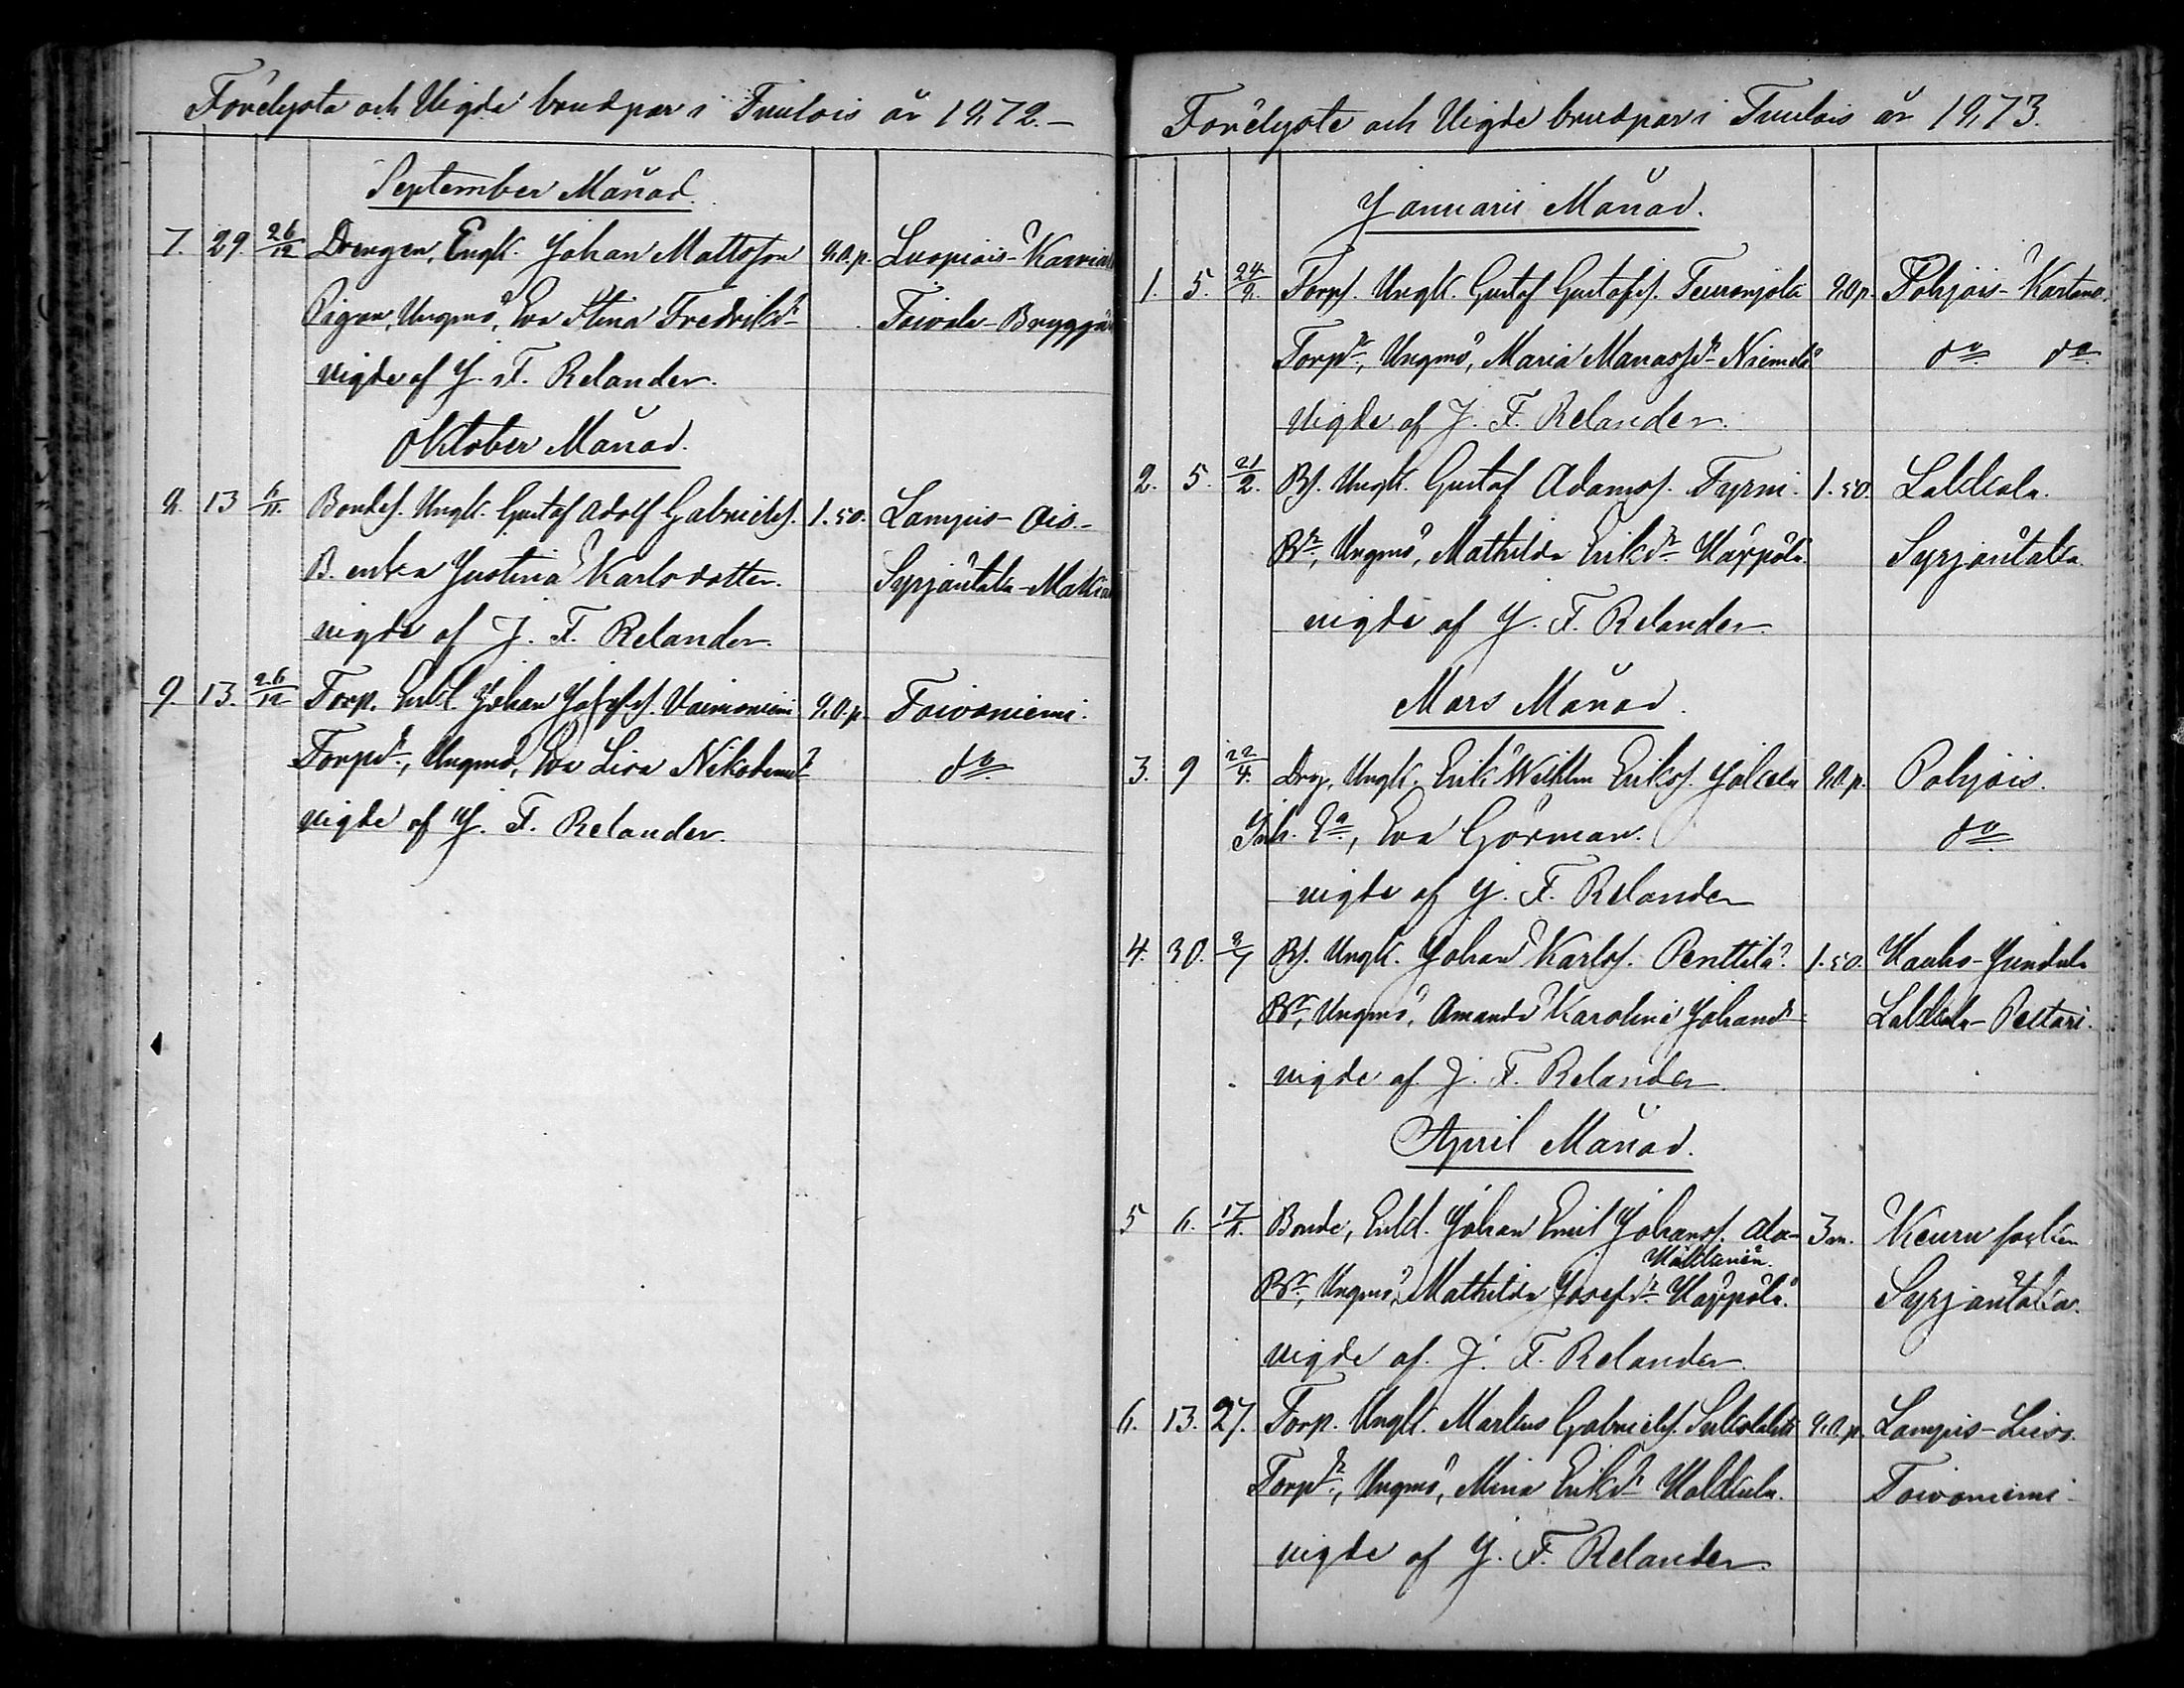 Förelysta och Vigda brudpar i Tuulois år 1872.-
September Månad.
7. 29. 26/12 Drengen, Engk. Johan Mattsson 80.p. Luopiois-Karvia
Pigan, Ungmö, Eva Stina Fredriksdr Toivala-Bryggjä
vigde af J. F. Relander.
Oktober Månad.
8. 13 6/11. Bondes. Ungk. Gustaf Adolf Gabriels. 1.50. Lampis-Ois-
B. enka Justina Karlsdotter. Syrjäntaka-Mäki
vigde af J. F. Relander.
9. 13. 26/12 Torp. Enkl. Johan Josefs. Vainioniemi 80.p. Toivoniemi.
Torpdr, Ungmö, Eva Lisa Nikodemusdr do
vigde af J. F. Relander.
Förelyste och Vigde brudpar i Tuulois år 1873.
Januarii Månad.
1. 5. 24/2. Torps. Ungk. Gustaf Gustafss. Teuronjoki 80p. Pohjois-Kartano.
Torpdr, Ungmö, Maria Manassedr Niemelä do do
vigde af J. F. Relander.
2. 5. 21/2. Bs. Ungk. Gustaf Adamss. Tyrni. 1.50. Lalkkala.
Bdr, Ungmö, Mathilda Eriksdr Käppölä. Syrjäntaka.
vigde af J. F. Relander.
Mars Månad.
3. 9 22/4. Drg, Ungk. Erik Wilhlm Eriks. 80.p. Pohjois.
Inh. Eva Görman. do
vigde af J. F. Relander
4. 30. Bs. Ungk. Johan Karls. Penttilä. 1.50. Hauho-
Bdr, Ungmö, Amanda Karolina Johansdr Lalkkala-Pettari.
vigde af J. F. Relander
April Månad.
5 6. Bonde, Enkl. Johan Emil Johanss. Ala- 3 m. Keuru socken
Bdr, Ungmö, Mathilda Josefsdr Käppölä. Syrjäntaka.
vigde af J. F. Relander.
6. 13. 27. Torp. Ungk. Markus Gabriels. 80.p. Lampis-Lieso.
Torpdr, Ungmö, Mina Eriksdr Toivoniemi
vigde af J. F. Relander.